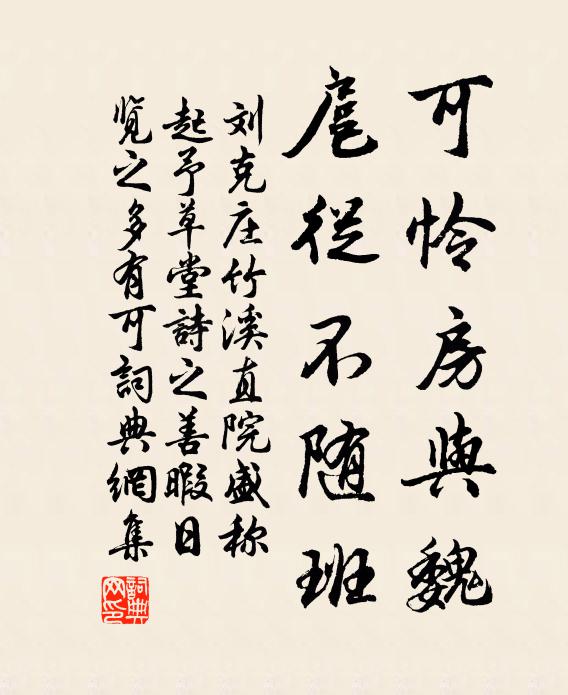 可怜房與魏
扈從不随班
刘克庄竹溪直院盛称
起予草堂詩之善暇日
覧之多有可詞典網集
詞典網印